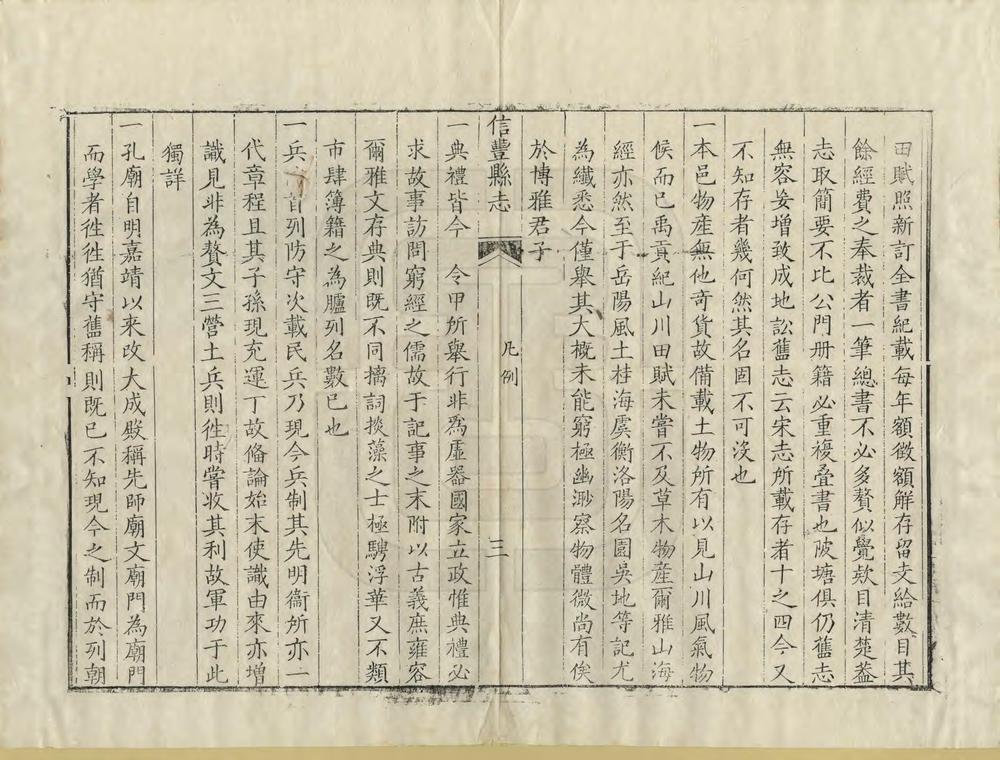 田賦照新訂全書紀載每年額徵額解存留支給數目其
餘經費之奉裁者一筆總書不必多贅似覺欵目清楚葢
志取簡要不比公門册籍必重複叠書也陂塘俱仍舊志
無容妄增致成地訟舊志云宋志所載存者十之四今又
不知存者幾何然其名固不可沒也
一本邑物產無他奇貨故備載土物所有以見山川風氣物
候而已禹貢紀山川田賦未嘗不及草木物產爾雅山海
經亦然至于岳陽風土桂海虞衡洛陽名園吳地等記尤
為纖悉今僅舉其大概未能窮極幽渺察物體微尚有俟
於博雅君子
信豐縣志
凡例
三
一典禮皆今 令甲所舉行非爲虛器國家立政惟典禮必
求故事訪問窮經之儒故于記事之末附以古義庶雍容
爾雅文存典則既不同摛詞掞藻之士極騁浮華又不類
市肆簿籍之為臚列名數已也
一兵 首列防守次載民兵乃現今兵制其先明衞所亦一
代章程且其子孫現充運丁故俻論始末使識由來亦增
識見非為贅文三營土兵則徃時嘗收其利故軍功于此
獨詳
一孔廟自明嘉靖以來改大成殿稱先師廟文廟門為廟門
而學者徃徃猶守舊稱則既已不知現今之制而於列朝